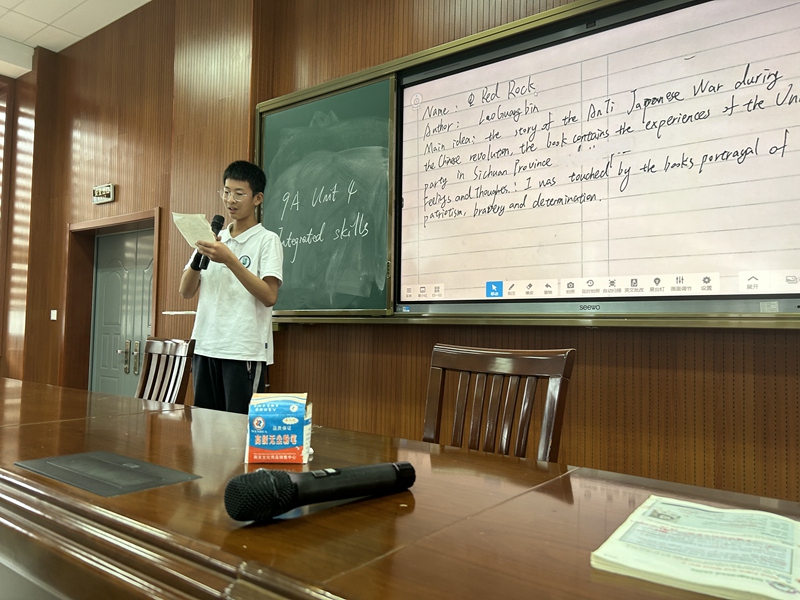 9A Unit 4
Integrated skills
Name: Red Rock
Author: Luo Guangbin
Main idea: the story of the Anti Japanese War during
the Chinese revolution, the book contains the experiences of the
party in Sichuan Province
Feelings and Thoughts: I was touched by the books portrayal of
patriotism, bravery and determination.
设置
展开
seewo
品质保证
高级无尘粉笔